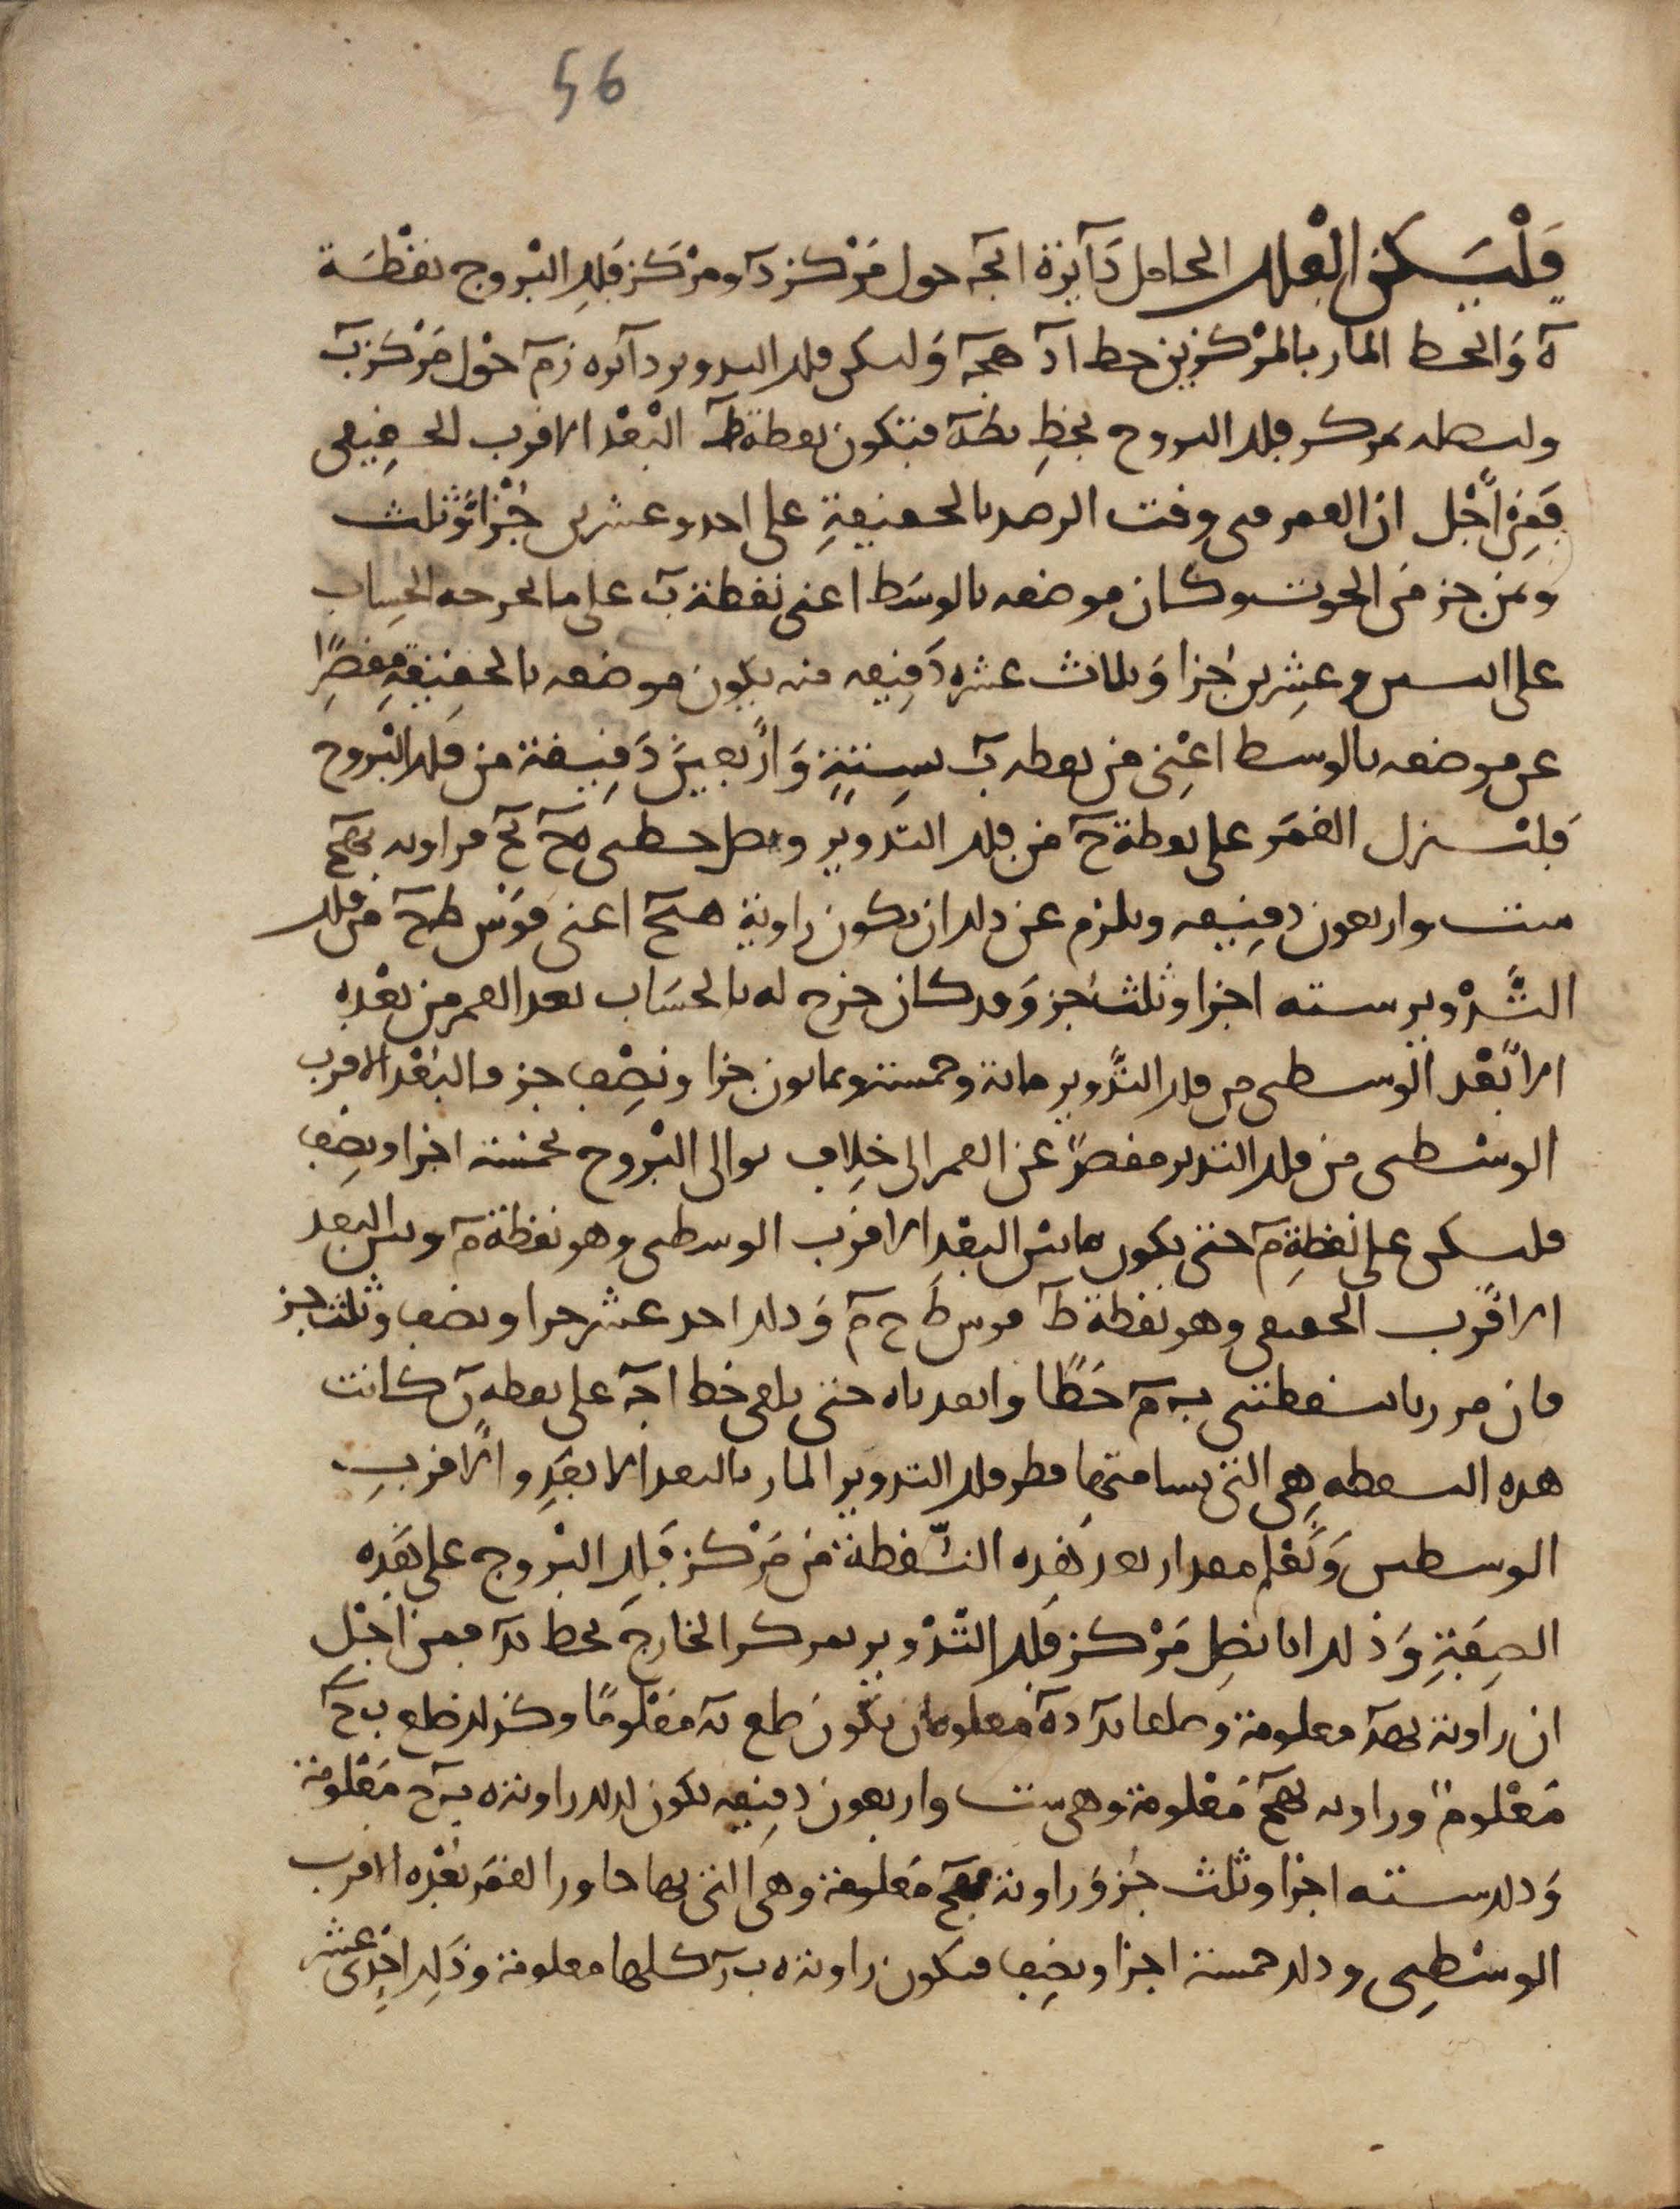 56
فَلْيَكن الفلك الحامل دَآيرة ابجـ حول مَرْكز د ومرْكز فلكِ البُروج نقْطـة
ه وَالخط المار بالمرْكزين خط اد هجـ وَليكن فلك التدوير دآئره زم حَوْل مَرْكز ب
وليصله بمركز فلك البروج بخطِ بطه فتكون نقطة ط البُعْد الاقرب الحقيقى
فَمِنَ اَجْل ان القمر فى وقت الرصد بالحقيقةِ على احد وعشرين جُزْا وَثلث
وثمن جز من الحوت وكان موضعه بالوسَط اعنى نقطة ب على ما اخرجه الحِساب
على اثنين وعِشرين جُزا وَثلاث عشره دَقيقه منه يكون موضعه بالحقيقةِ مقصِرًا
عن موضعه بالوسط اعْنِى من نقطه ب سِتةٍ وَاَرْبعينَ دَقيقة من فلك البُروج
فلنـنزل القمَر على نقطة ح من فلك التدوير ونصل خطى هح بح فزاويه بهح
ست واربعون دقيقه ويلزم عن ذلك ان يكون زاوية هبح اعنى قوْس طح من فلك
التَّدْوير سته اجزا وثلث جُز وَقد كان خرج له بالحسَاب بعد القمر من بعْدِه
الاَبْعَد الوسطى من فلك التَّدوير مائة وخمسة وثمانون جزا ونِصْف جز فالبُعْد الاقرب
الوسْطى من فلك التدوير مقصرٌ عن القمر الى خِلاف توالى البُروج بخمْسة اجزا ونِصْف
فليكن على نقطةِ م حتى يكون ما بيْن البعْد الاقرب الوسطى وهو نقطة م وبين البعد
الاقرب الحقيقى وهو نقطة ط قوس ط ح م وَذلك احد عشر جزا ونصف وثلث جز
فان مررنا بنقطتى ب م خَطًا وانفذناه حتى يلقى خط اجـ على نقطه ن كانت
هذه النقطه هِى التى يسامتها قطر فلك التدوير المار بالبعد الابعَدِ والاَقرب
الوسطيين وَنَعْلم مقدار بعد هَذِه النقطة من مَرْكز فلكِ البُروج على هَذِه
الصِفَةِ وَذلك انا نصِل مَرْكز فلك التَّدْوير بمركز الخارج بخط بد فمن اَجْل
ان زاوية بهد معلومة وضلعا بد ده معلومان يكون ضلع به مَعْلومًا وكذلك ضلع ب ح
مَعْلومٌ وزاويه بهح مَعْلومة وهى ست واربعون دقيقه يكون لذلك زاوية ه ب ح مَعْلومة
وَذلك سته اجزا وثلث جُز وَزاوية مبح مَعلومة وهى التى بها جاوز القمَر بُعْده الاقرب
الوسْطِى وذلك خمسة اجزا ونِصْف فتكون زاوية ه ب ن كلها معلومة وذَلِك اِحْدى عشر